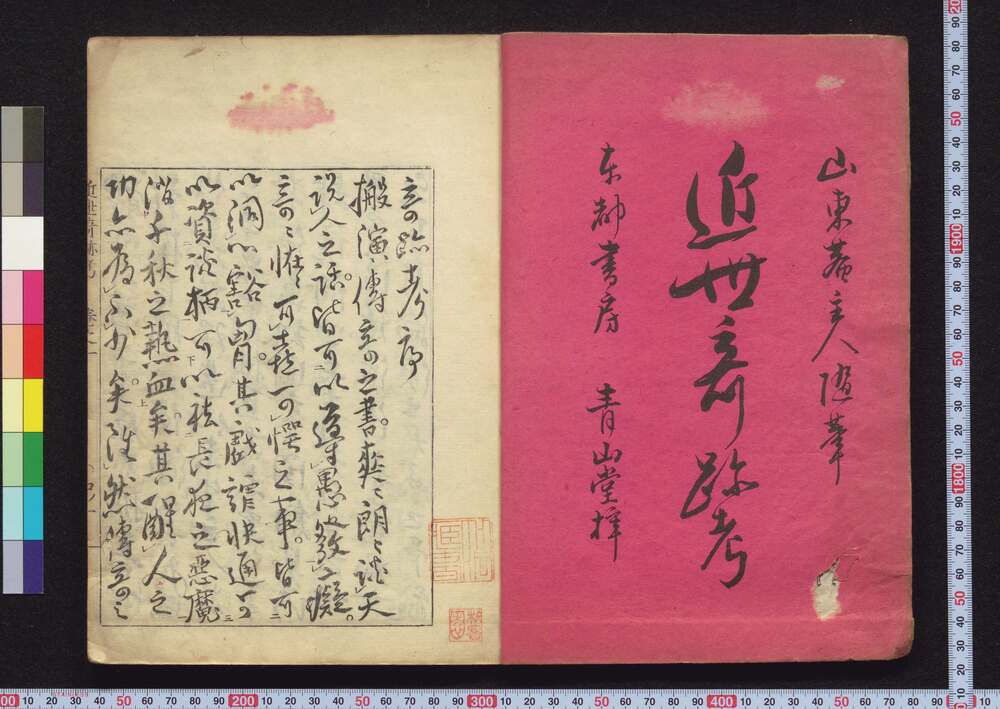 山東菴主人随筆
近世奇跡考
東都書房 青山堂梓
奇跡考序
搬演傳奇之書。爽〻朗〻談天
説人之話。皆可以導愚発癡。
奇〻怪〻可喜可愕之事。皆可
以洞心豁胷。其戯謔快通
以資談柄可以祛長夜之悪魔
消千秋之熱血矣。其醒人之
功亦為不少矣。雖然傳奇之
近世奇跡考 巻之一